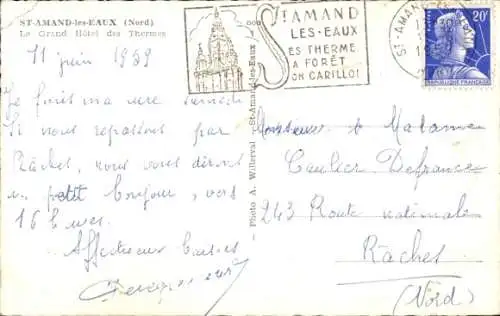 ST-AMAND-les-EAUX (Nord)
Le Grand Hôtel des Thermes
11 juin 1959
Je finis ma cure samedi
Si nous repassons par
Râches, nous vous dirons
un petit bonjour, vers
16 heures.
Affectueux baisers
Photo A. Willerval - St-Amand-les-Eaux
ST AMAND
LES-EAUX
ES THERME
A FORÊT
ON CARILLO
ST-AMAND
20F
REPUBLIQUE FRANÇAISE
Monsieur et Madame
Caulier Defrance
243 Route nationale
Râches
(Nord)